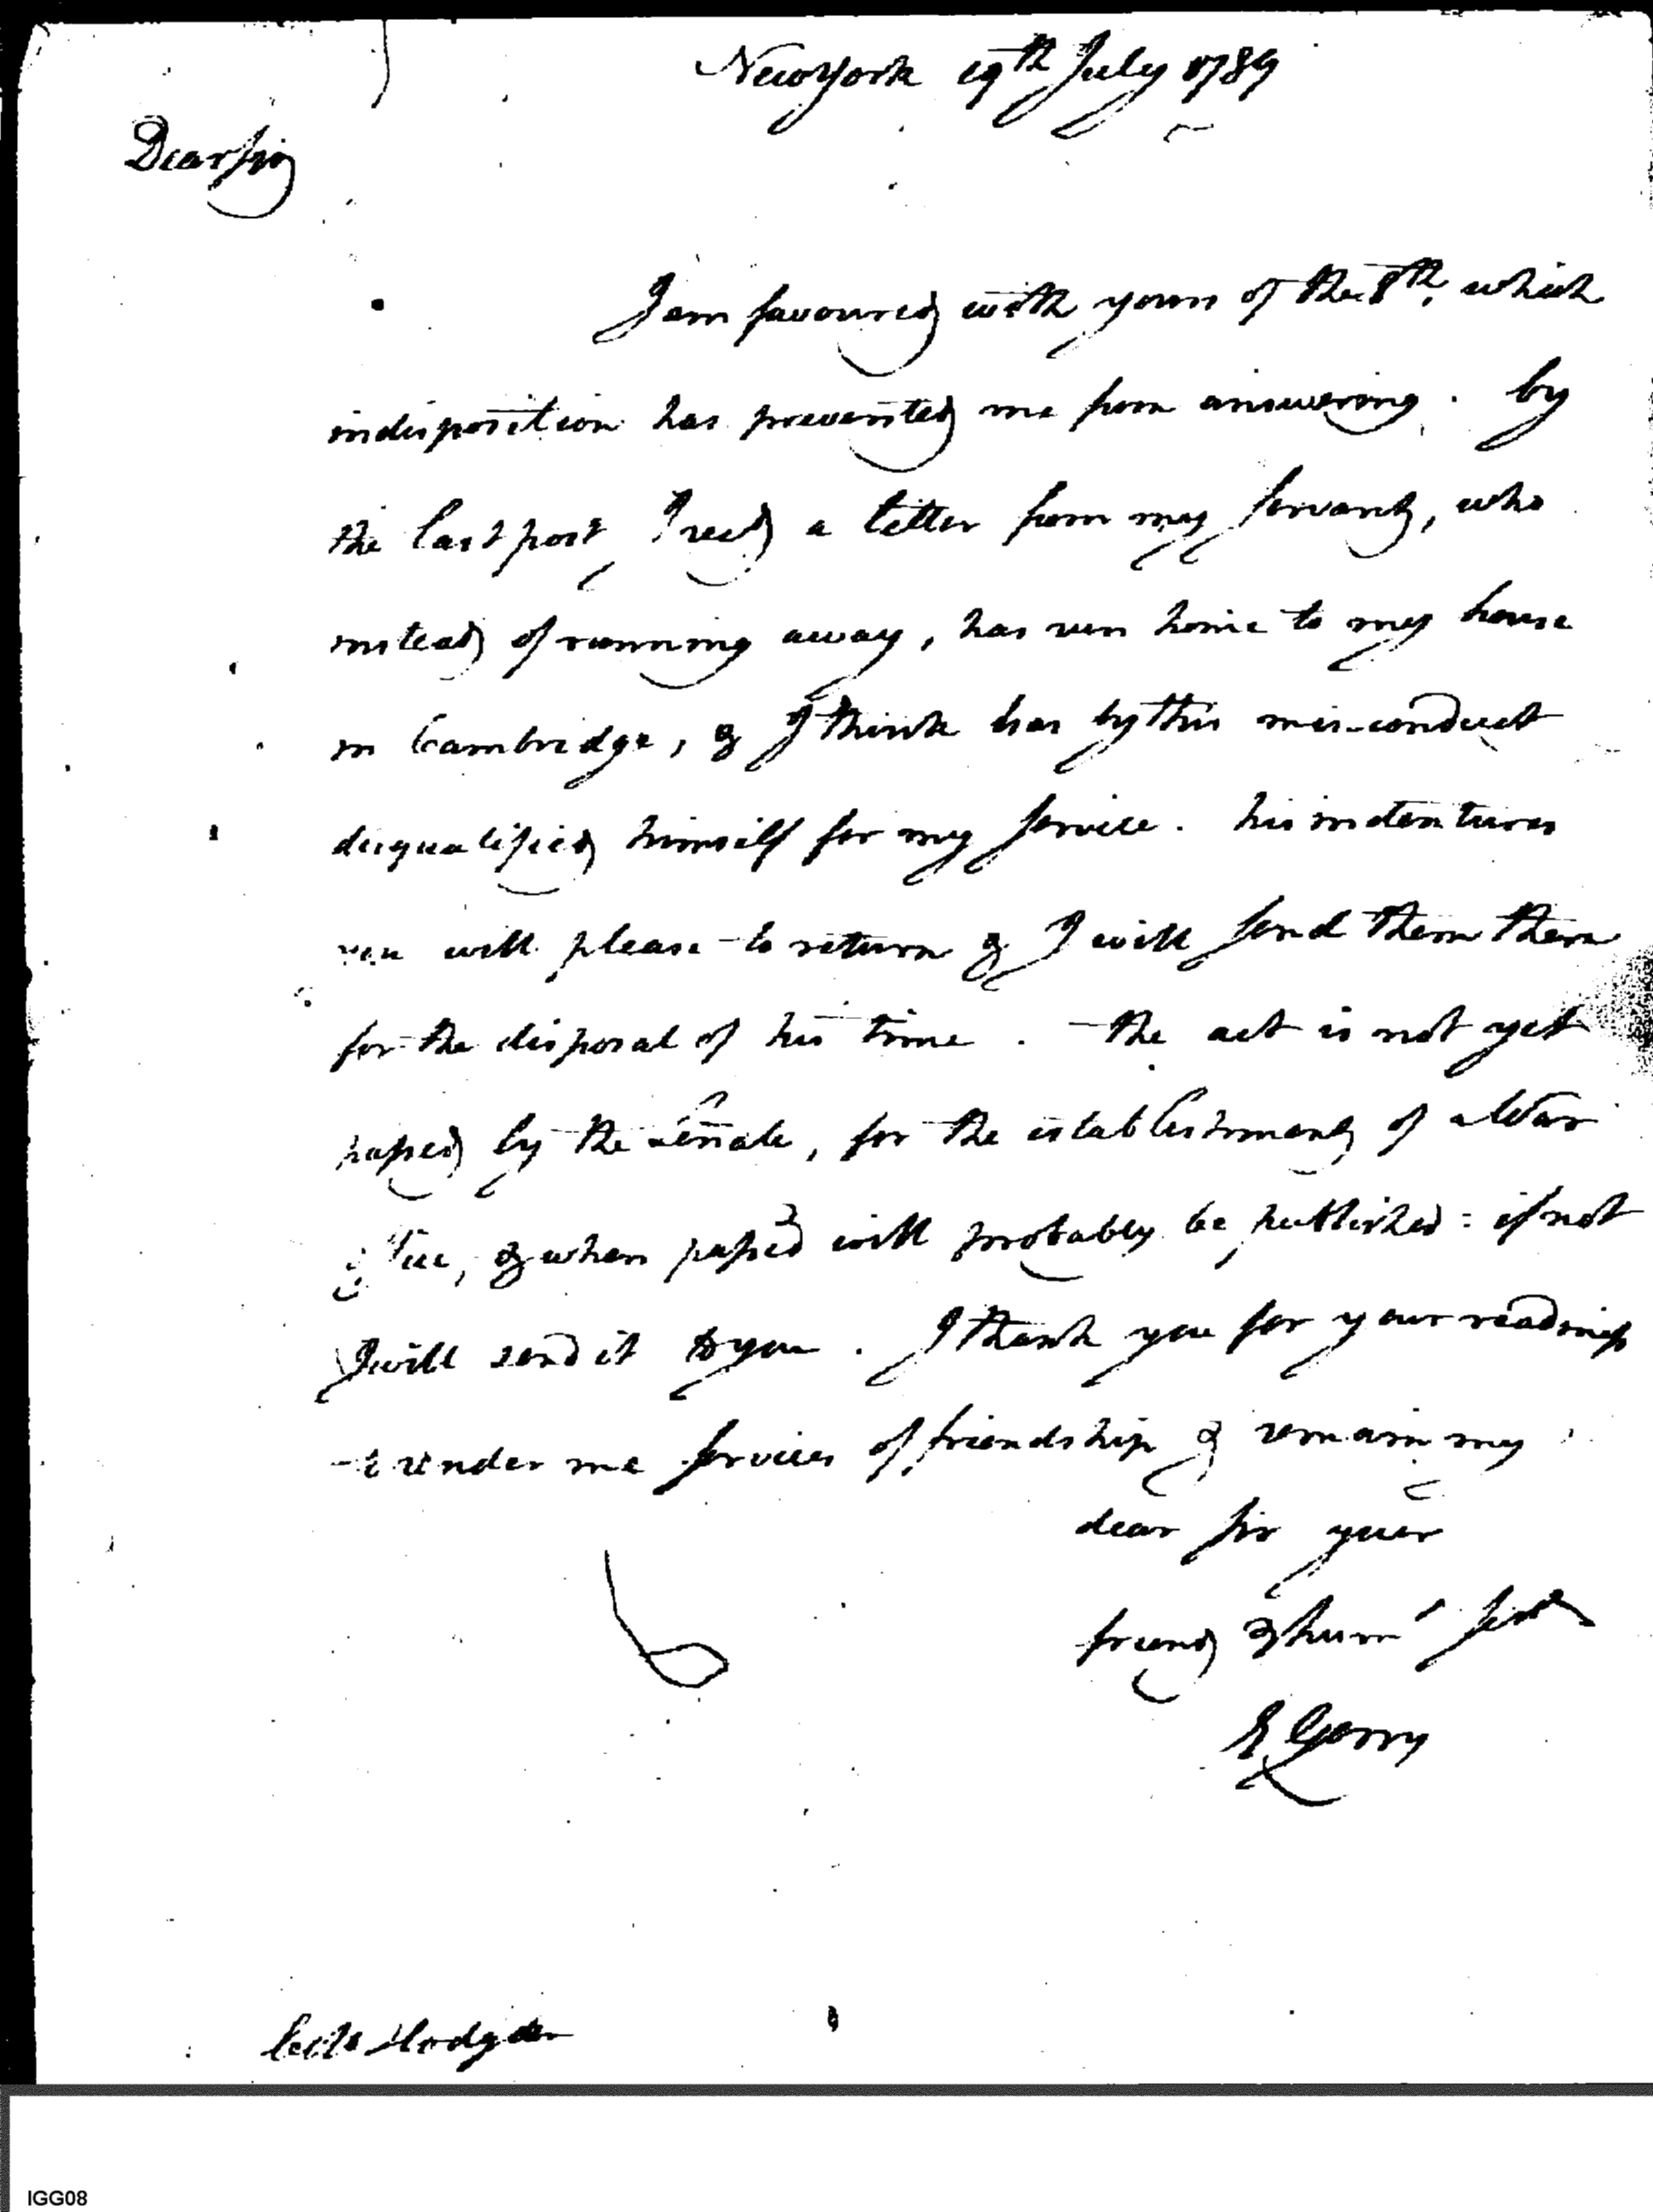 New York 19th July 1789
Dear sir
I am favoured with yours of the 8th, which
indisposition has prevented me from answering. by
the last post, I recd a letter from my servant, who
instead of running away, has run home to my house
in Cambridge, & I think has by this misconduct
disqualified himself for my service. his indentures
you will please to return & I will send them there
for the disposal of his time. the act is not yet
passed by the Senate, for the establishment of a War
, & when passed will probably be published: if not
I will send it to you. I thank you for your readiness
to render me services of friendship & remain my
dear sir your
friend & hume sert
E Gerry
Hodgdon
IGG08